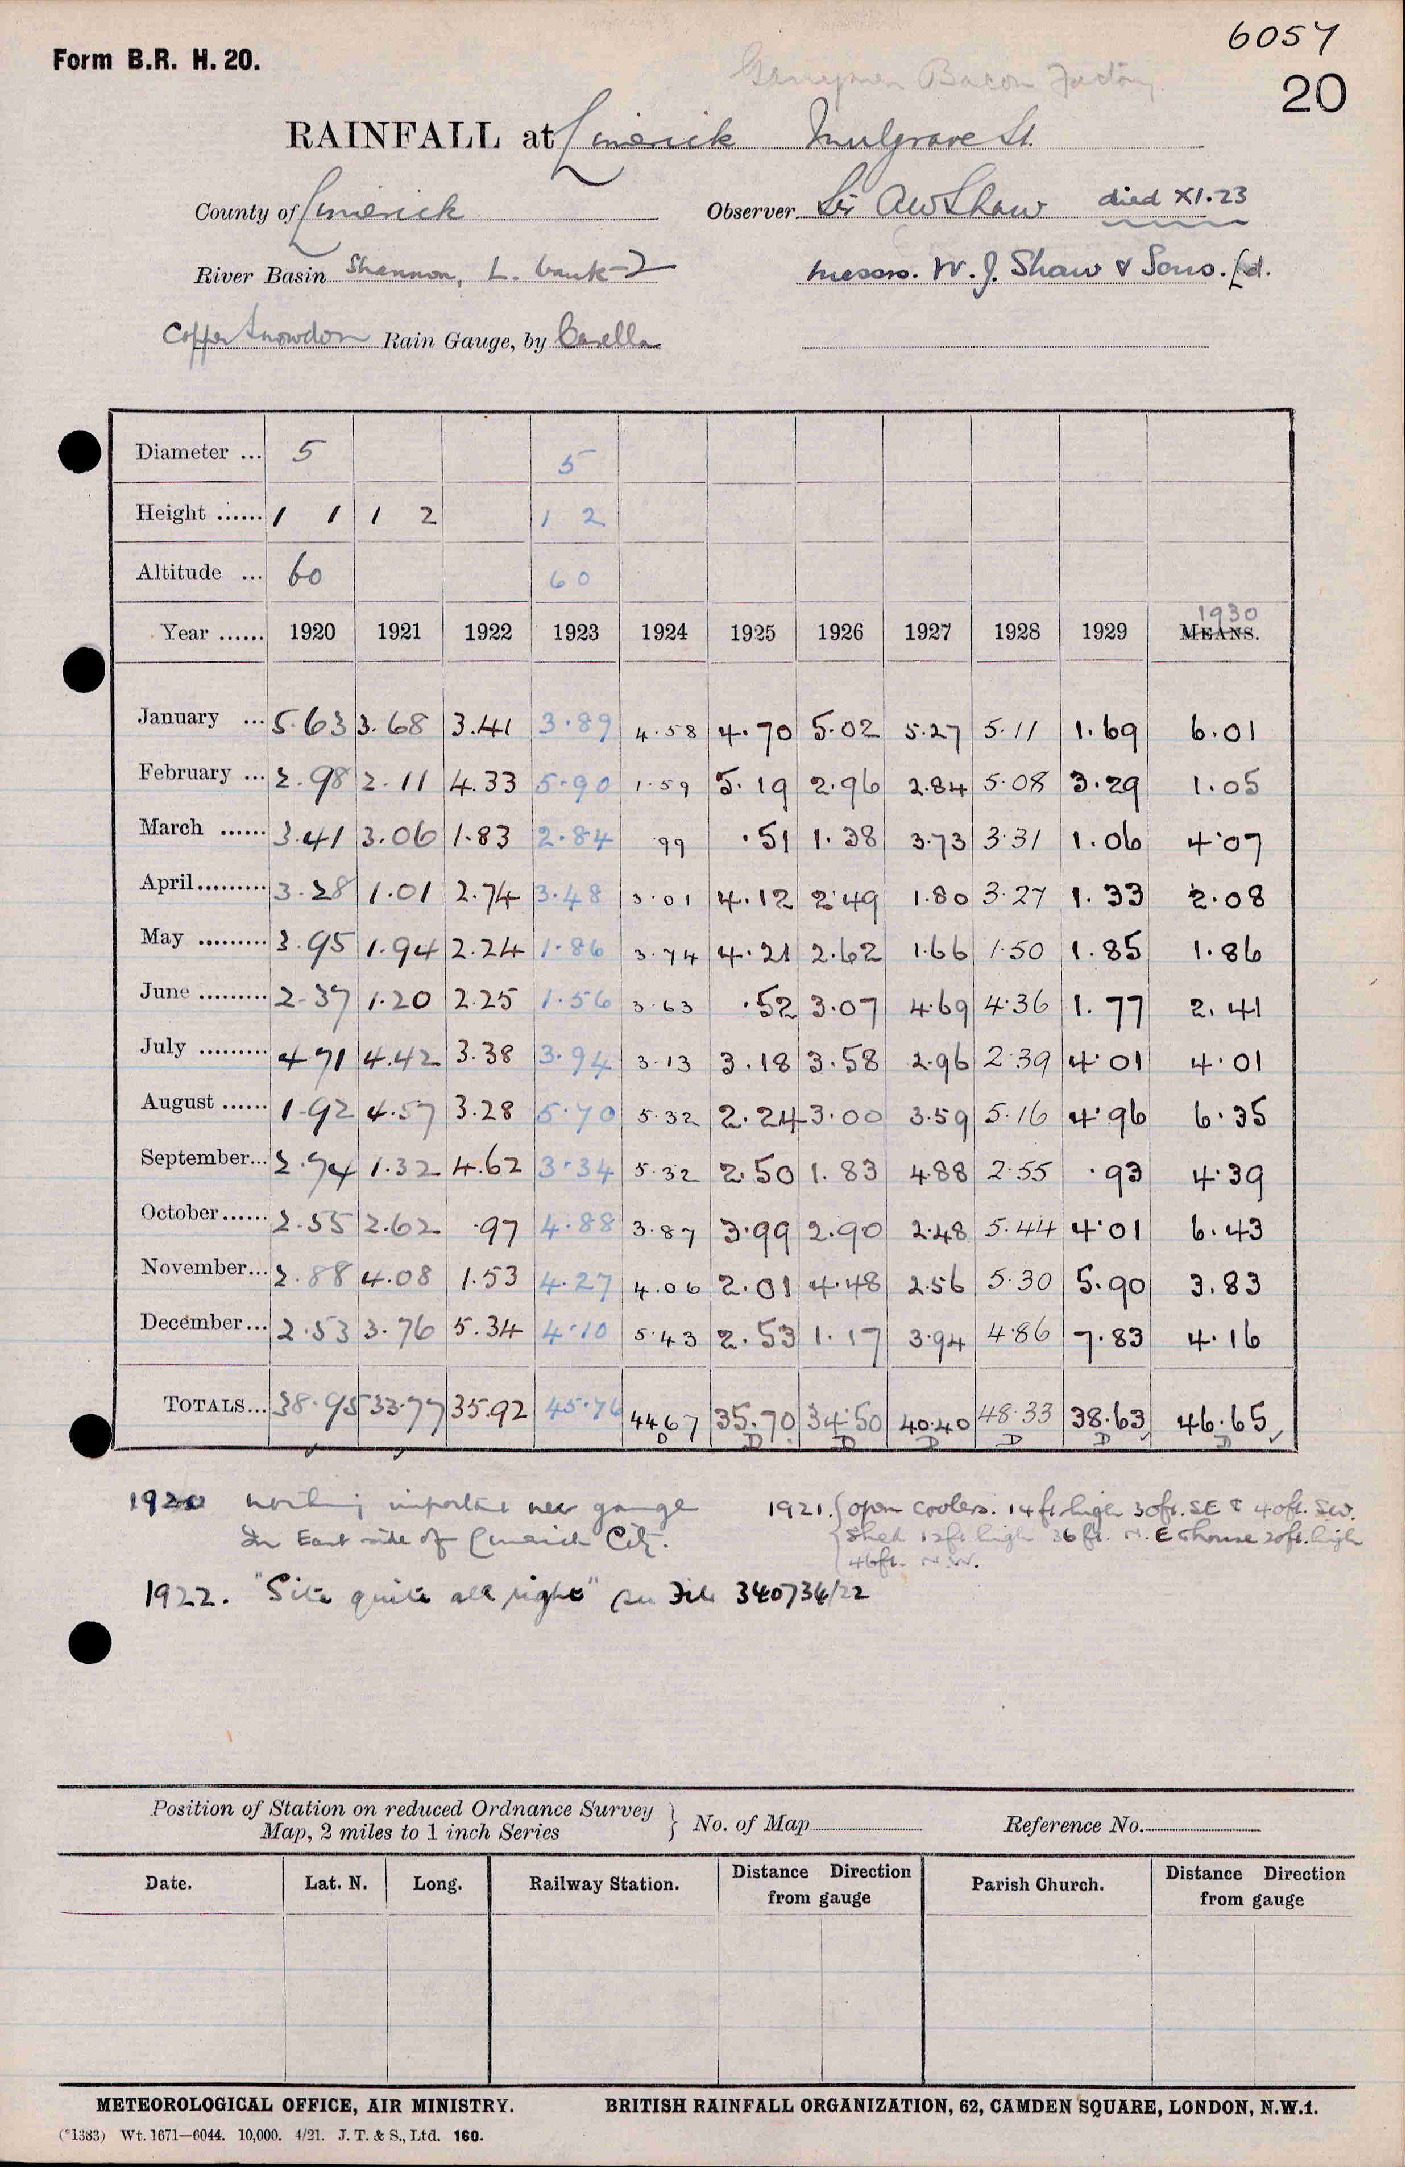 6057
Form B.R. H. 20.
Bacon Factory
20
RAINFALL at Limerick Mulgrave St.
County of Limerick Observer Sir AW Shaw died XI.23
River Basin Shannon, L. bank-2 Messrs. W. J. Shaw & Sons. Ld.
Copper Snowdon Rain Gauge, by Casella
Diameter ... 5 5
Height ...... 1 1 1 2 1 2
Altitude ... 60 60
1930
Year ...... 1920 1921 1922 1923 1924 1925 1926 1927 1928 1929 MEANS.
January ... 5.63 3.68 3.41 3.89 4.58 4.70 5.02 5.27 5.11 1.69 6.01
February ... 2.98 2.11 4.33 5.90 1.59 5.19 2.96 2.84 5.08 3.29 1.05
March ...... 3.41 3.06 1.83 2.84 99 .51 1.38 3.73 3.31 1.06 4.07
April......... 3.28 1.01 2.74 3.48 3.01 4.12 2.49 1.80 3.27 1.33 2.08
May ......... 3.95 1.94 2.24 1.86 3.74 4.21 2.62 1.66 1.50 1.85 1.86
June ......... 2.37 1.20 2.25 1.56 3.63 .52 3.07 4.69 4.36 1.77 2.41
July ......... 4.71 4.42 3.38 3.94 3.13 3.18 3.58 2.96 2.39 4.01 4.01
August ...... 1.92 4.57 3.28 5.70 5.32 2.24 3.00 3.59 5.16 4.96 6.35
September... 2.74 1.32 4.62 3.34 5.32 2.50 1.83 4.88 2.55 .93 4.39
October...... 2.55 2.62 .97 4.88 3.87 3.99 2.90 2.48 5.44 4.01 6.43
November... 2.88 4.08 1.53 4.27 4.06 2.01 4.48 2.56 5.30 5.90 3.83
December... 2.53 3.76 5.34 4.10 5.43 2.53 1.17 3.94 4.86 7.83 4.16
TOTALS... 38.95 33.77 35.92 45.76 44.67 35.70 34.50 40.40 48.33 38.63 46.65
D D D D D D D
1920 important new gauge 1921. { open coolers. 14 ft. high 30ft. SE & 40ft. SW.
In East side of Limerick City. Shed 12ft high 36 ft. N.E & house 20ft. high
46ft. N.W.
1922. "Site quite all right" See File 340734/22
Position of Station on reduced Ordnance Survey Map, 2 miles to 1 inch Series } No. of Map Reference No.
Date. Lat. N. Long. Railway Station. Distance Direction from gauge Parish Church. Distance Direction from gauge
METEOROLOGICAL OFFICE, AIR MINISTRY. BRITISH RAINFALL ORGANIZATION, 62, CAMDEN SQUARE, LONDON, N.W.1.
(*1383) Wt. 1671—6044. 10,000. 4/21. J. T. & S., Ltd. 160.